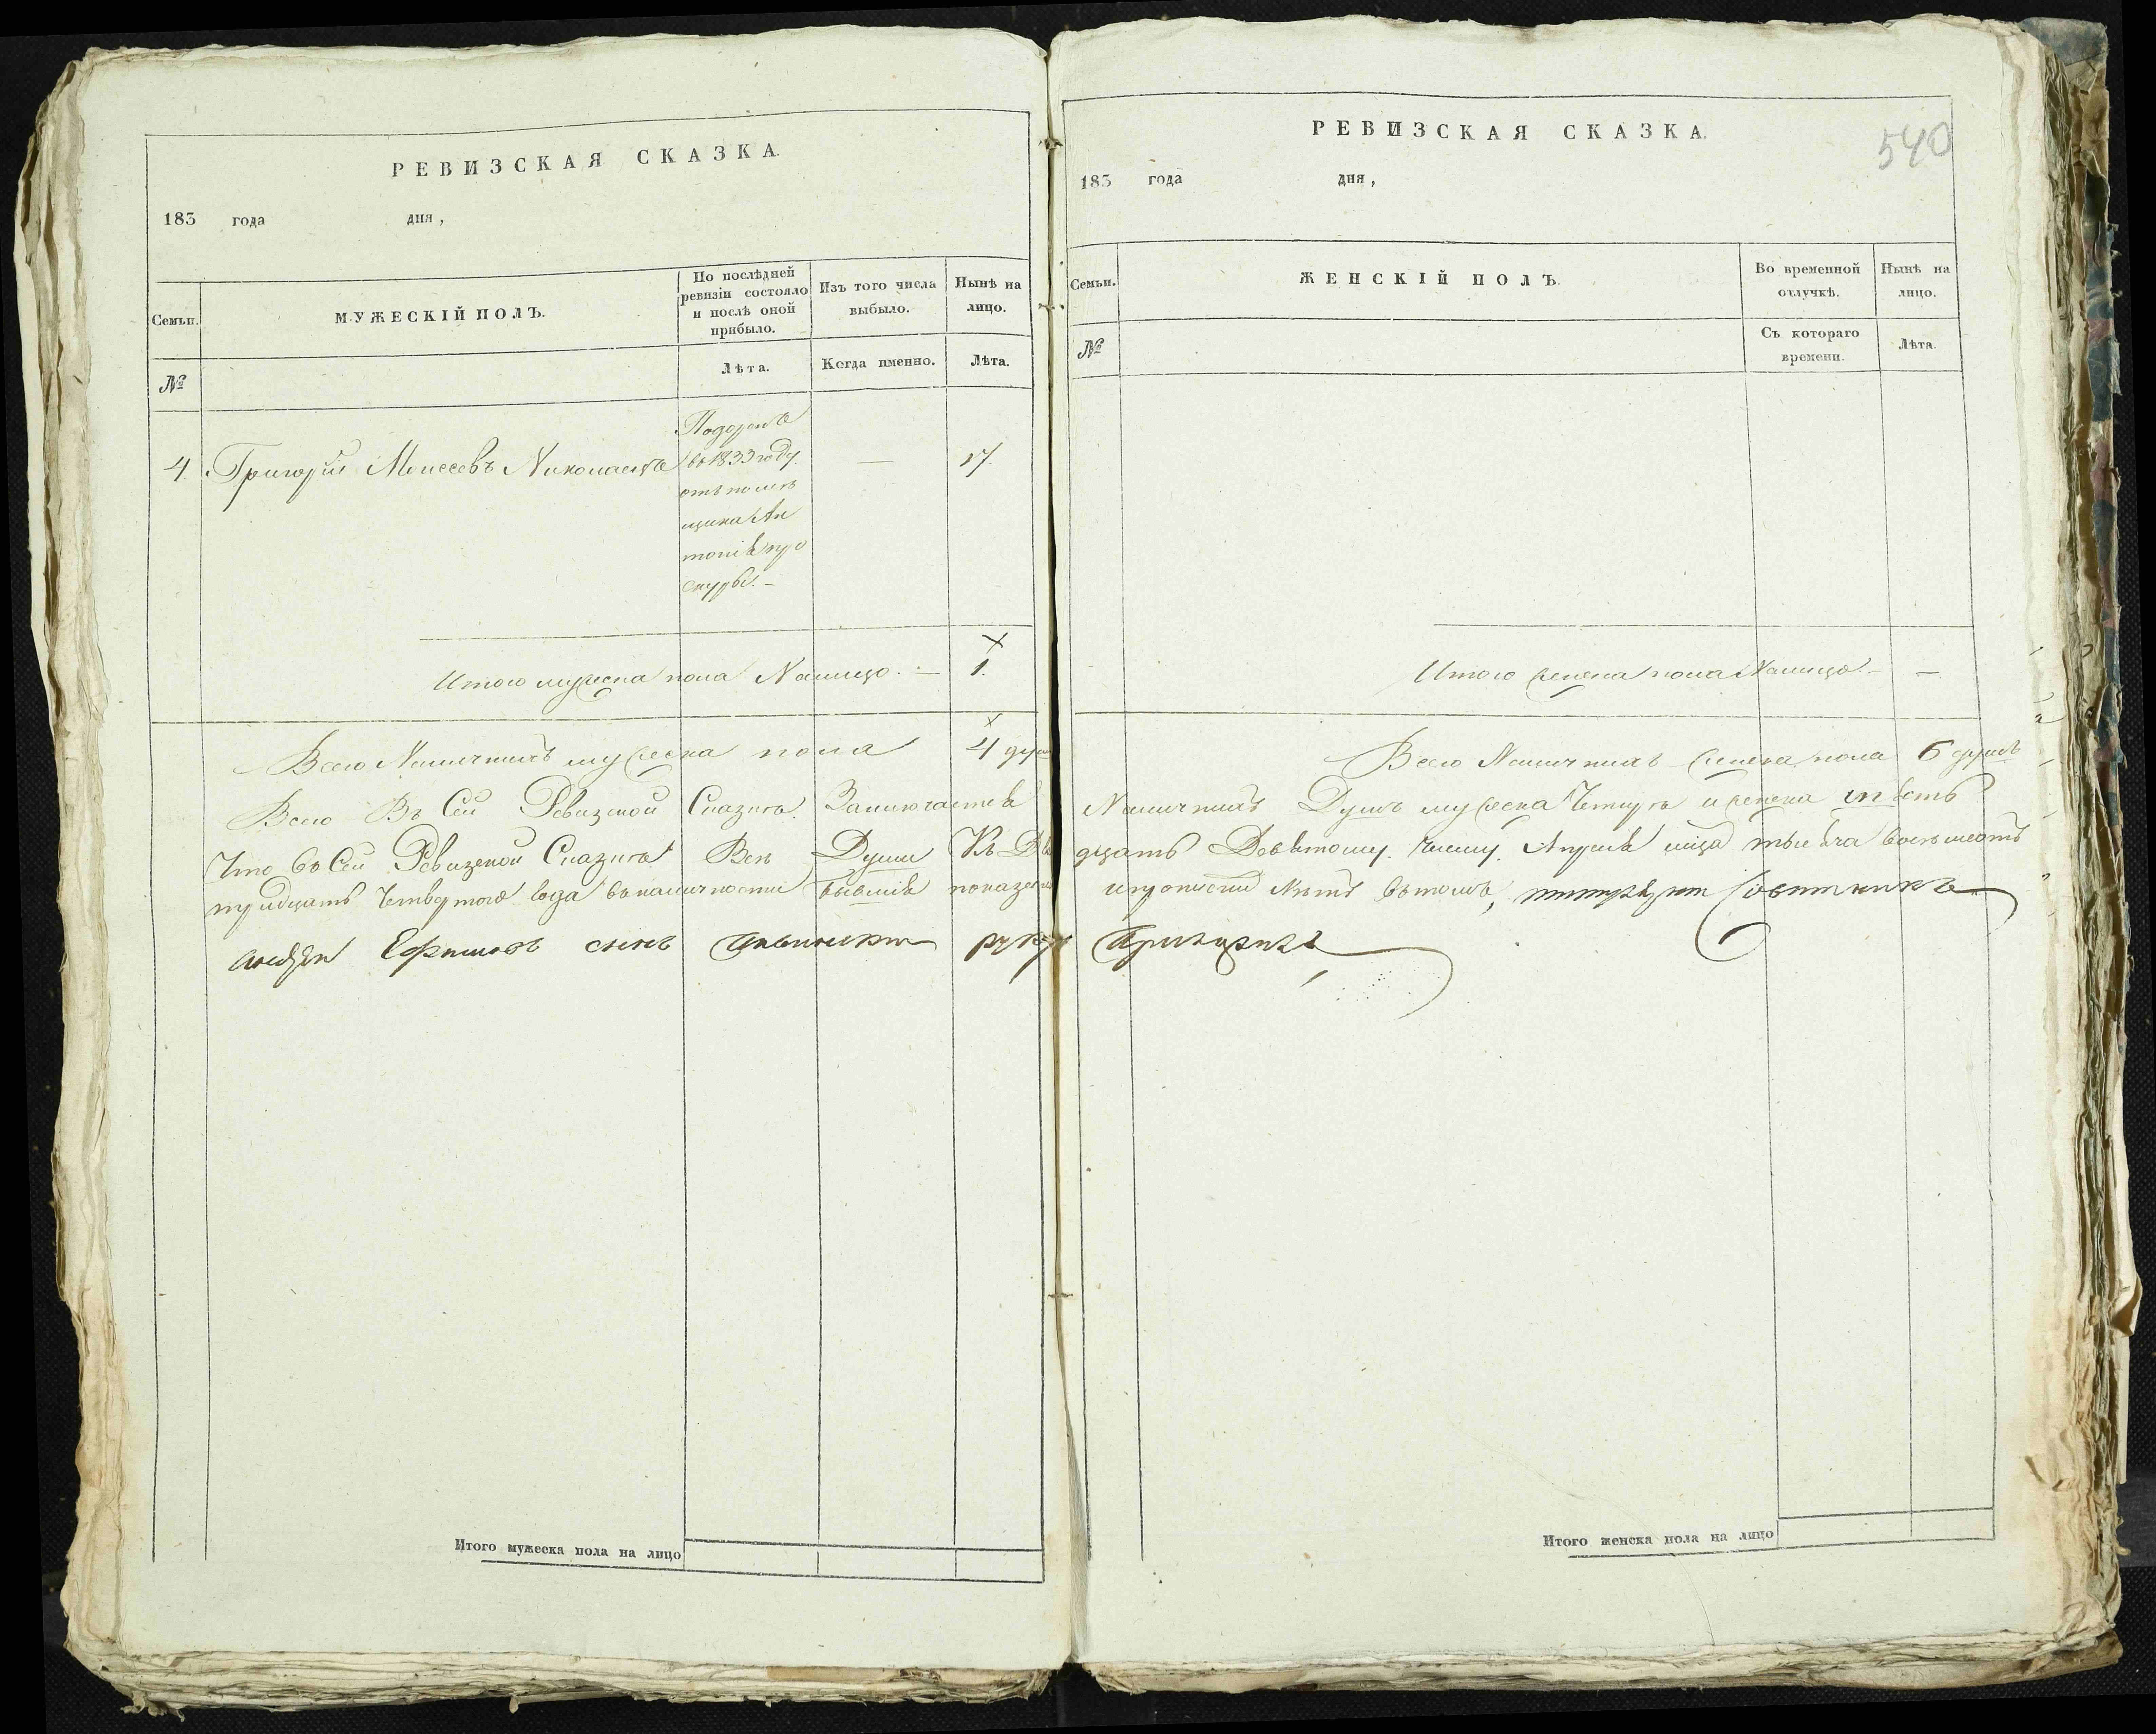 РЕВИЗСКАЯ СКАЗКА.
183 года дня,
Семьи.
МУЖЕСКІЙ ПОЛЪ.
По послѣдней
ревизіи состояло
и послѣ оной
прибыло.
Изъ того числа
выбыло.
Нынѣ на
лицо.
№
Лѣта.
Когда именно.
Лѣта.
4. Григорій Моисеевъ
въ 1833 году.
отъ помѣ
щика Ан
тонія про
скуры. —
—
17.
Итого мужеска пола Налицо. — 1.
Всего Наличныхъ мужеска пола 4 душ
Всего Въ Сей Ревизской Сказкѣ. Заключается
Что въ Сей Ревизской Сказкѣ Всѣ Души Къ Два
тридцать Четвертого года въ наличности бывшія показаны
Ефимовъ сынъ руку
РЕВИЗСКАЯ СКАЗКА.
540
183 года дня,
Семьи.
ЖЕНСКІЙ ПОЛЪ.
Во временной
отлучкѣ.
Нынѣ на
лицо.
№
Съ котораго
времени.
Лѣта.
Лѣта.
Итого женска пола Налицо. — —
Всего Наличныхъ женска пола 6 душъ
Наличныхъ Душъ мужеска Четыре и женска шѣсть
дцать Девятому. Числу. Апреля мца тысяча восемьсотъ
и прописной Нѣтъ въ томъ, Советникъ
Приложилъ
Итого мужеска пола на лицо
Итого женска пола на лицо